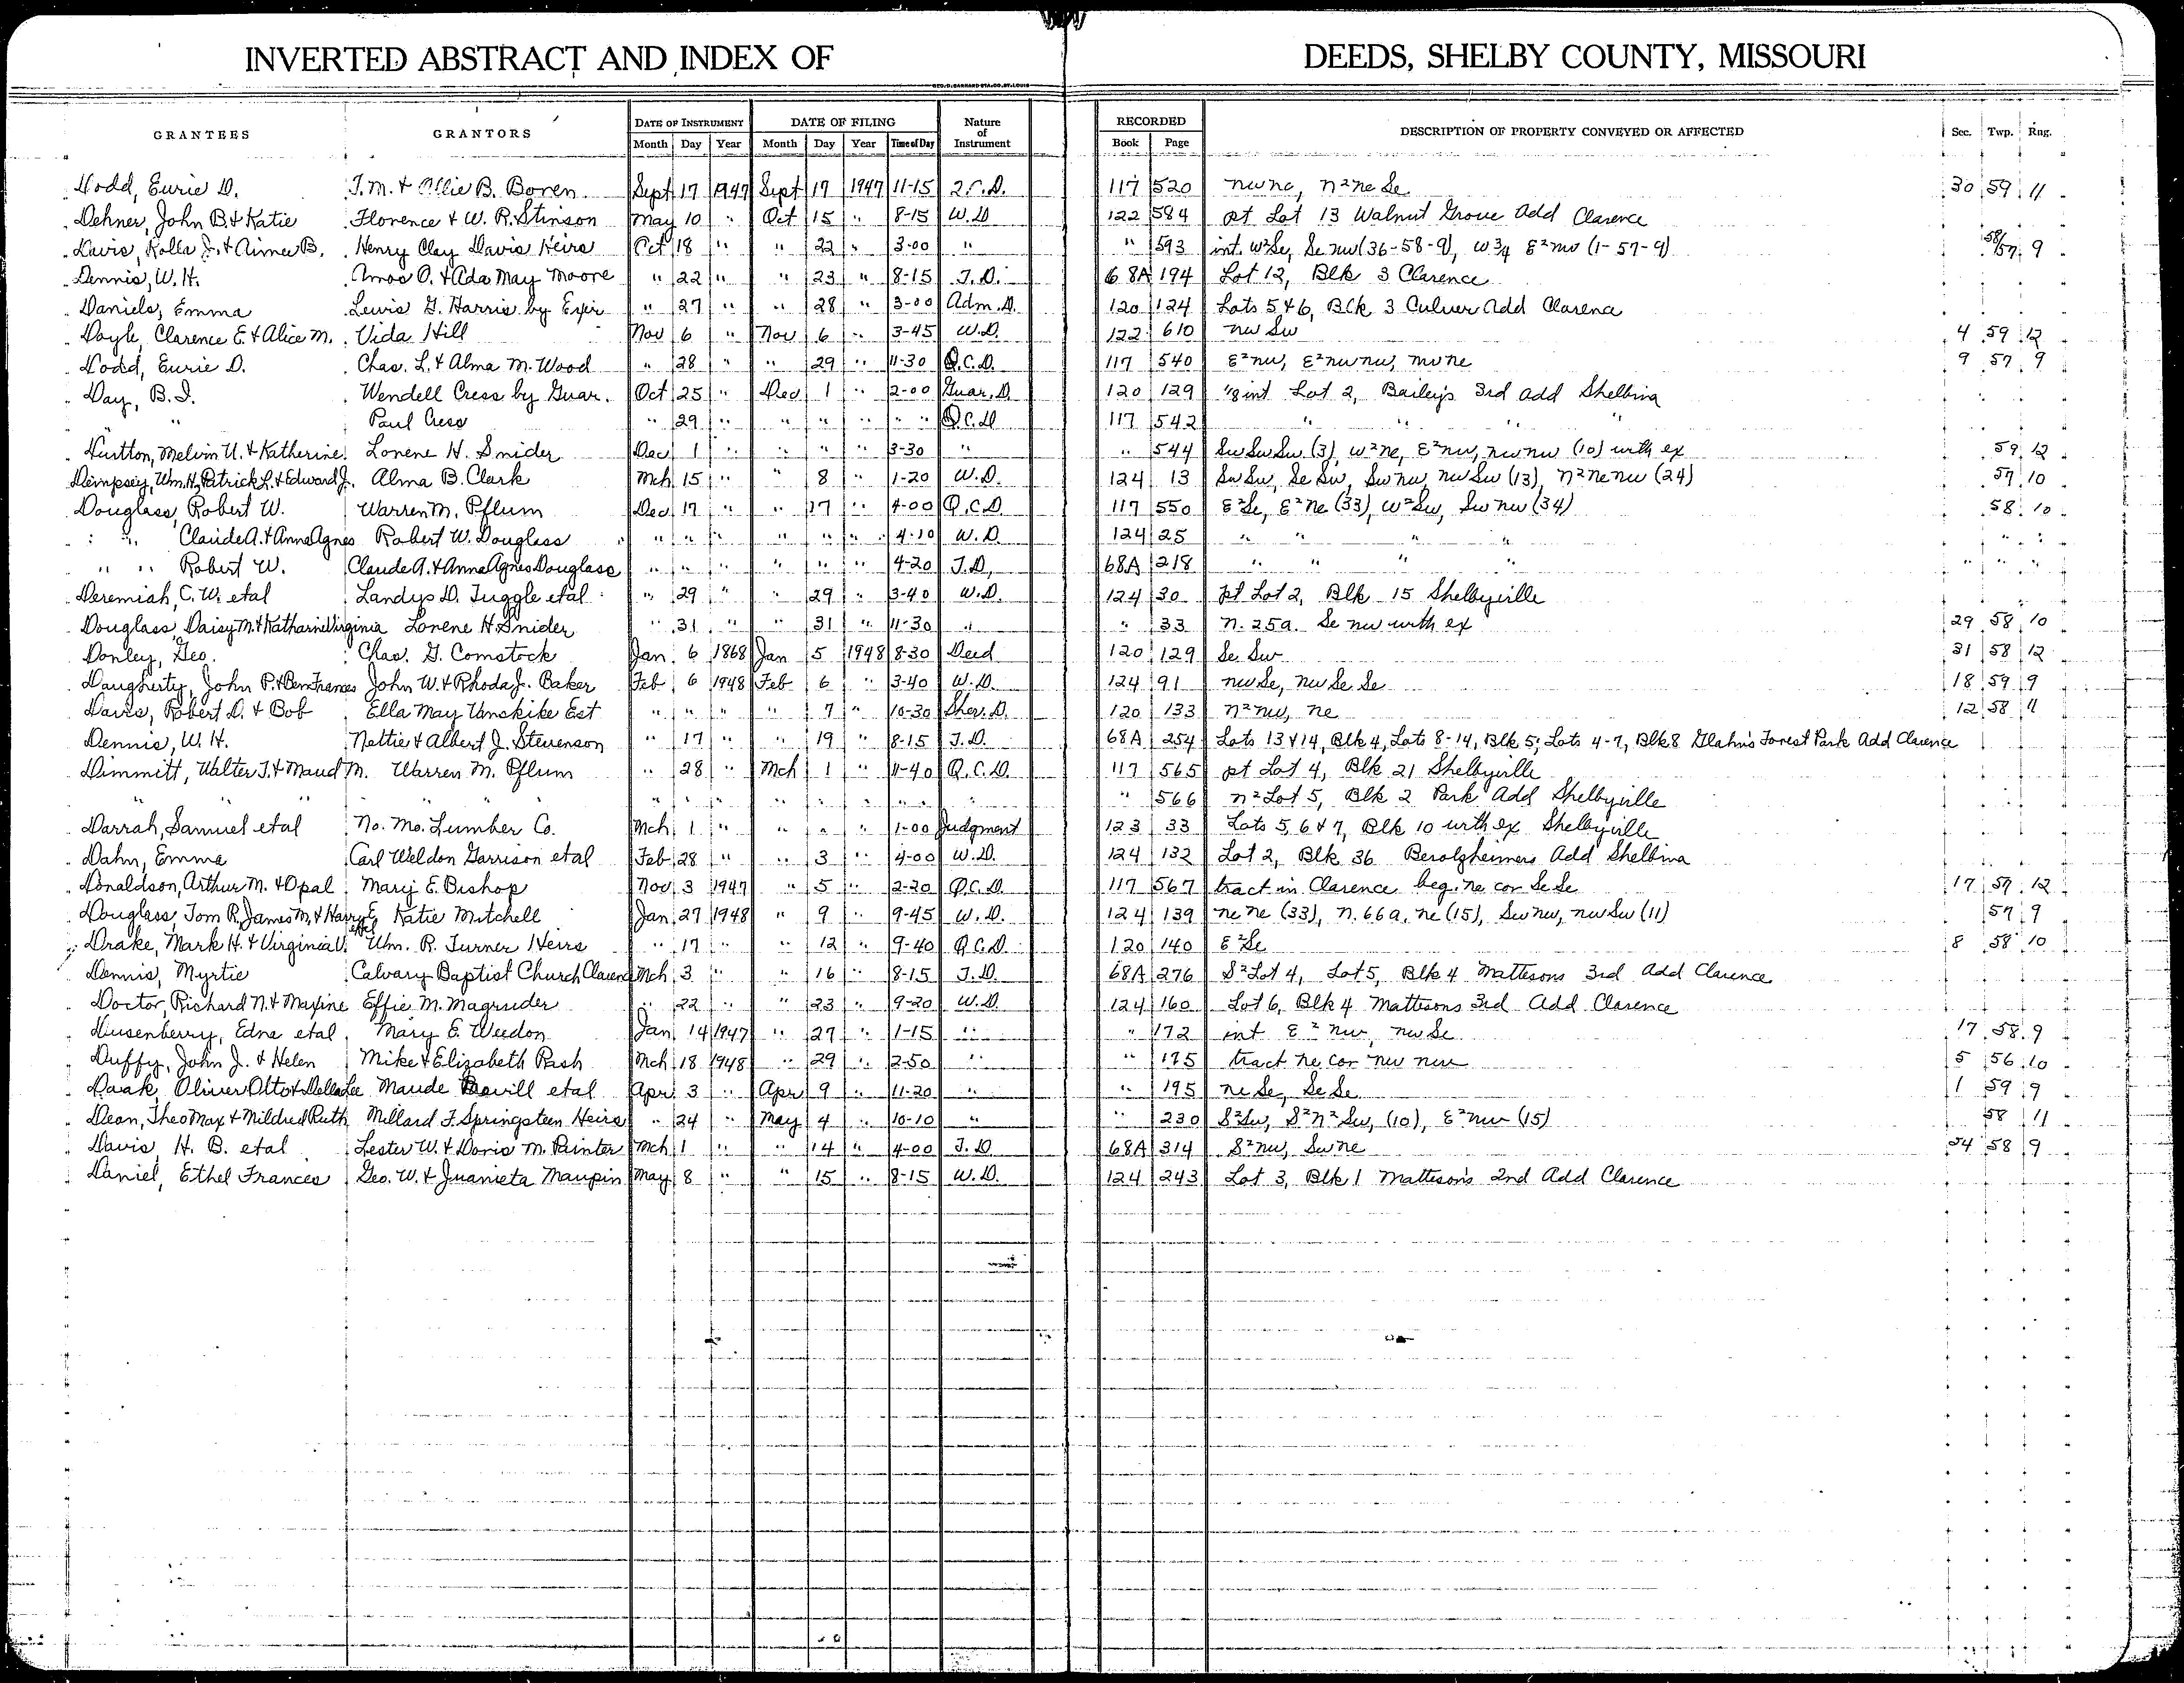 INVERTED ABSTRACT AND INDEX OF DEEDS, SHELBY COUNTY, MISSOURI
GRANTEES GRANTORS DATE OF INSTRUMENT DATE OF FILING Nature of Instrument RECORDED DESCRIPTION OF PROPERTY CONVEYED OR AFFECTED Sec. Twp. Rng.
Month Day Year Month Day Year Time of Day Book Page
Dodd, Eurie D. T. M. & Ollie B. Boren Sept 17 1947 Sept 17 1947 11-15 Q.C.D. 117 520 nw ne, n²ne Se 30 59 11
Dehner, John B. & Katie Florence & W. R. Stinson May 10 " Oct 15 " 8-15 W.D 122 584 pt Lot 13 Walnut Grove Add Clarence
Davis, Rolla J. & Aimee B. Henry Clay Davis Heirs Oct 18 " " 22 " 3-00 " " 593 int. W²Se, Se nw (36-58-9), W 3/4 E²nw (1-57-9) 58/57 9
Dennis, W. H. Amos O. & Ada May Moore " 22 " " 23 " 8-15 T.D. 68A 194 Lot 12, Blk 3 Clarence
Daniels, Emma Lewis G. Harris by Exr " 27 " " 28 " 3-00 Adm.D. 120 124 Lots 5 & 6, Blk 3 Culver Add Clarence
Doyle, Clarence E. & Alice M. Vida Hill Nov 6 " Nov 6 " 3-45 W.D. 122 610 nw Sw 4 59 12
Dodd, Eurie D. Chas. L. & Alma M. Wood " 28 " " 29 " 11-30 Q.C.D. 117 540 E²nw, E²nw nw, nw ne 9 57 9
Day, B. I. Wendell Cress by Guar. Oct 25 " Dec 1 " 2-00 Guar.D. 120 129 1/8 int Lot 2, Bailey's 3rd add Shelbina
" Paul Cress " 29 " " " " " " Q.C.D 117 542 " " " "
Dutton, Melvin U. & Katherine Lorene H. Snider Dec 1 " " " " 3-30 " " 544 Sw Sw Sw (3), W²ne, E²nw, nw nw (10) with ex 59 12
Dempsey, Wm. H, Patrick L. & Edward J. Alma B. Clark Mch 15 " " 8 " 1-20 W.D. 124 13 Sw Sw, Se Sw, Sw nw, nw Sw (13), n²ne nw (24) 57 10
Douglass, Robert W. Warren M. Pflum Dec 17 " " 17 " 4-00 Q.C.D. 117 550 E²Se, E²ne (33), W²Sw, Sw nw (34) 58 10
" " Claude A. & Anna Agnes Robert W. Douglass " " " " " " 4-10 W.D. 124 25 " " " " " "
" " Robert W. Claude A. & Anna Agnes Douglass " " " " " " 4-20 T.D. 68A 218 " " " " " "
Deremiah, C. W. etal Landys D. Tuggle etal " 29 " " 29 " 3-40 W.D. 124 30 pt Lot 2, Blk 15 Shelbyville
Douglass, Daisy M. & Katharine Virginia Lorene H. Snider " 31 " " 31 " 11-30 " " 33 n. 25a. Se nw with ex 29 58 10
Donley, Geo. Chas. G. Comstock Jan 6 1868 Jan 5 1948 8-30 Deed 120 129 Se Sw 31 58 12
Daugherty, John P. & Ben Frances John W. & Rhoda J. Baker Feb 6 1948 Feb 6 " 3-40 W.D. 124 91 nw Se, nw Se Se 18 59 9
Davis, Robert D. & Bob Ella May Vanskike Est " " " " 7 " 10-30 Sher.D. 120 133 n²nw, ne 12 58 11
Dennis, W. H. Nettie & Albert J. Stevenson " 17 " " 19 " 8-15 T.D. 68A 254 Lots 13 & 14, Blk 4, Lots 8-14, Blk 5; Lots 4-7, Blk 8 Glahn's Forest Park Add Clarence
Dimmitt, Walter T. & Maud M. Warren M. Pflum " 28 " Mch 1 " 11-40 Q.C.D. 117 565 pt Lot 4, Blk 21 Shelbyville
" " " " " " " " " " " " " 566 n²Lot 5, Blk 2 Park Add Shelbyville
Darrah, Samuel etal No. Mo. Lumber Co. Mch 1 " " " " 1-00 Judgment 123 33 Lots 5, 6 & 7, Blk 10 with ex Shelbyville
Dahn, Emma Carl Weldon Garrison etal Feb 28 " " 3 " 4-00 W.D. 124 132 Lot 2, Blk 36 Berolzheimers Add Shelbina
Donaldson, Arthur M. & Opal Mary E. Bishop Nov 3 1947 " 5 " 2-20 Q.C.D. 117 567 tract in Clarence beg. ne cor Se Se 17 57 12
Douglass, Tom R, James M. & Harry E. etal Katie Mitchell Jan 27 1948 " 9 " 9-45 W.D. 124 139 ne ne (33), n. 66a, ne (15), Sw nw, nw Sw (11) 57 9
Drake, Mark H. & Virginia V. Wm. R. Turner Heirs " 17 " " 12 " 9-40 Q.C.D. 120 140 E²Se 8 58 10
Dennis, Myrtie Calvary Baptist Church Clarence Mch 3 " " 16 " 8-15 T.D. 68A 276 S²Lot 4, Lot 5, Blk 4 Mattesons 3rd Add Clarence
Doctor, Richard N. & Maxine Effie M. Magruder " 22 " " 23 " 9-20 W.D. 124 160 Lot 6, Blk 4 Mattesons 3rd Add Clarence
Dusenberry, Edna etal Mary E. Weedon Jan 14 1947 " 27 " 1-15 " " 172 int E²nw, nw Se 17 58 9
Duffy, John J. & Helen Mike & Elizabeth Rash Mch 18 1948 " 29 " 2-50 " " 175 tract ne cor nw nw 5 56 10
Daak, Oliver Otto & Della Lee Maude Bovill etal Apr 3 " Apr 9 " 11-20 " " 195 ne Se, Se Se 1 59 9
Dean, Theo Max & Mildred Ruth Millard F. Springsteen Heirs " 24 " May 4 " 10-10 " " 230 S²Sw, S²n²Sw, (10), E²nw (15) 58 11
Davis, H. B. etal Lester W. & Doris M. Painter Mch 1 " " 14 " 4-00 T.D 68A 314 S²nw, Sw ne 34 58 9
Daniel, Ethel Frances Geo. W. & Juanieta Maupin May 8 " " 15 " 8-15 W.D. 124 243 Lot 3, Blk 1 Matteson's 2nd Add Clarence